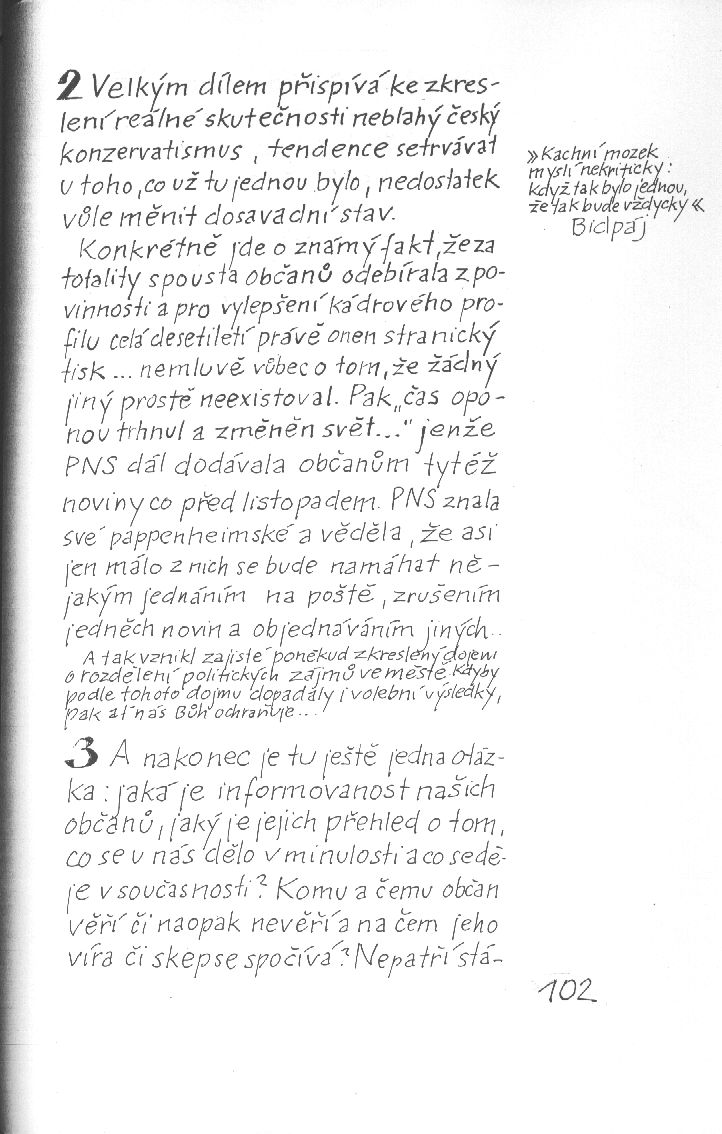 2 Velkým dílem přispívá ke zkres-
lení reálné skutečnosti neblahý český
konzervatismus, tendence setrvávat
u toho, co už tu jednou bylo, nedostatek
vůle měnit dosavadní stav.
Konkrétně jde o známý fakt, že za
totality spousta občanů odebírala z po-
vinnosti a pro vylepšení kádrového pro-
filu celá desetiletí právě onen stranický
tisk ... nemluvě vůbec o tom, že žádný
jiný prostě neexistoval. Pak „čas opo-
nou trhnul a změněn svět..." jenže
PNS dál dodávala občanům tytéž
noviny co před listopadem. PNS znala
své pappenheimské a věděla, že asi
jen málo z nich se bude namáhat ně-
jakým jednáním na poště, zrušením
jedněch novin a objednáváním jiných..
A tak vznikl zajisté poněkud zkreslený dojem
o rozdělení politických zájmů ve městě. Kdyby
podle tohoto dojmu dopadály i volební výsledky,
pak ať nás Bůh ochraňuje...
3 A nakonec je tu ještě jedna otáz-
ka: jaká je informovanost našich
občanů, jaký je jejich přehled o tom,
co se u nás dělo v minulosti a co se dě-
je v současnosti? Komu a čemu občan
věří či naopak nevěří a na čem jeho
víra či skepse spočívá? Nepatří stá-
»Kachní mozek
myslí nekriticky:
když tak bylo jednou,
že tak bude vždycky«
Bidpaj
102